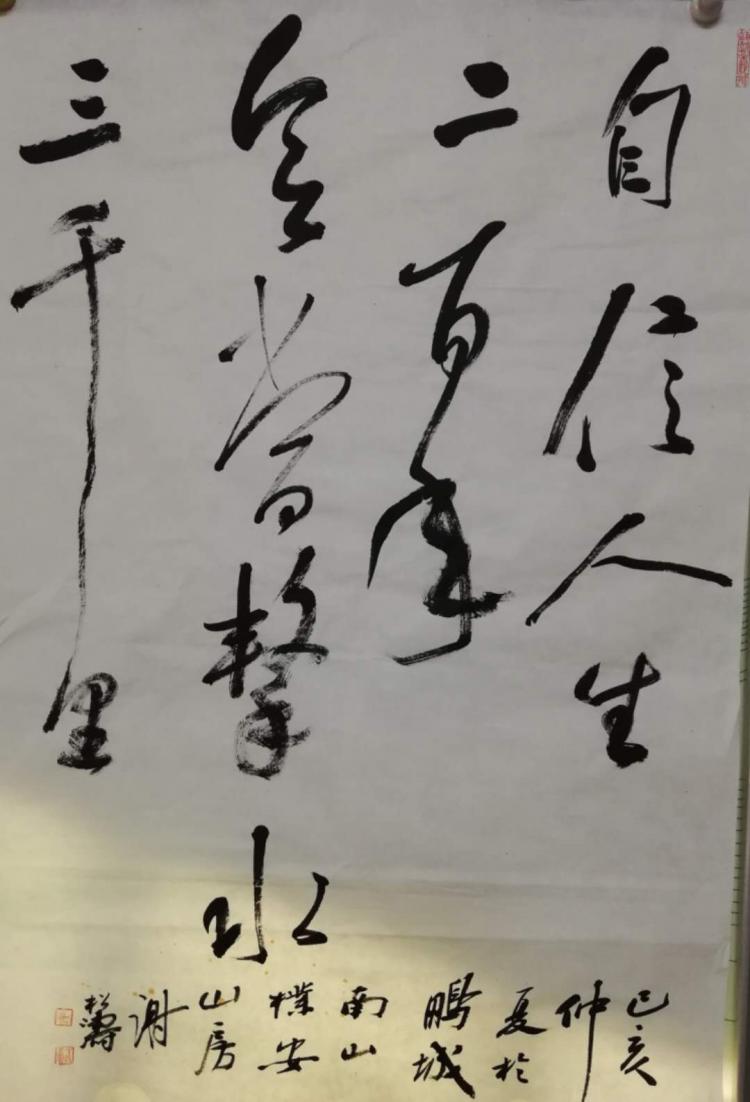 自信人生
二百年
会当击水
三千里
己亥
仲
夏於
鹏城
南山
樸安
山房
谢
松涛